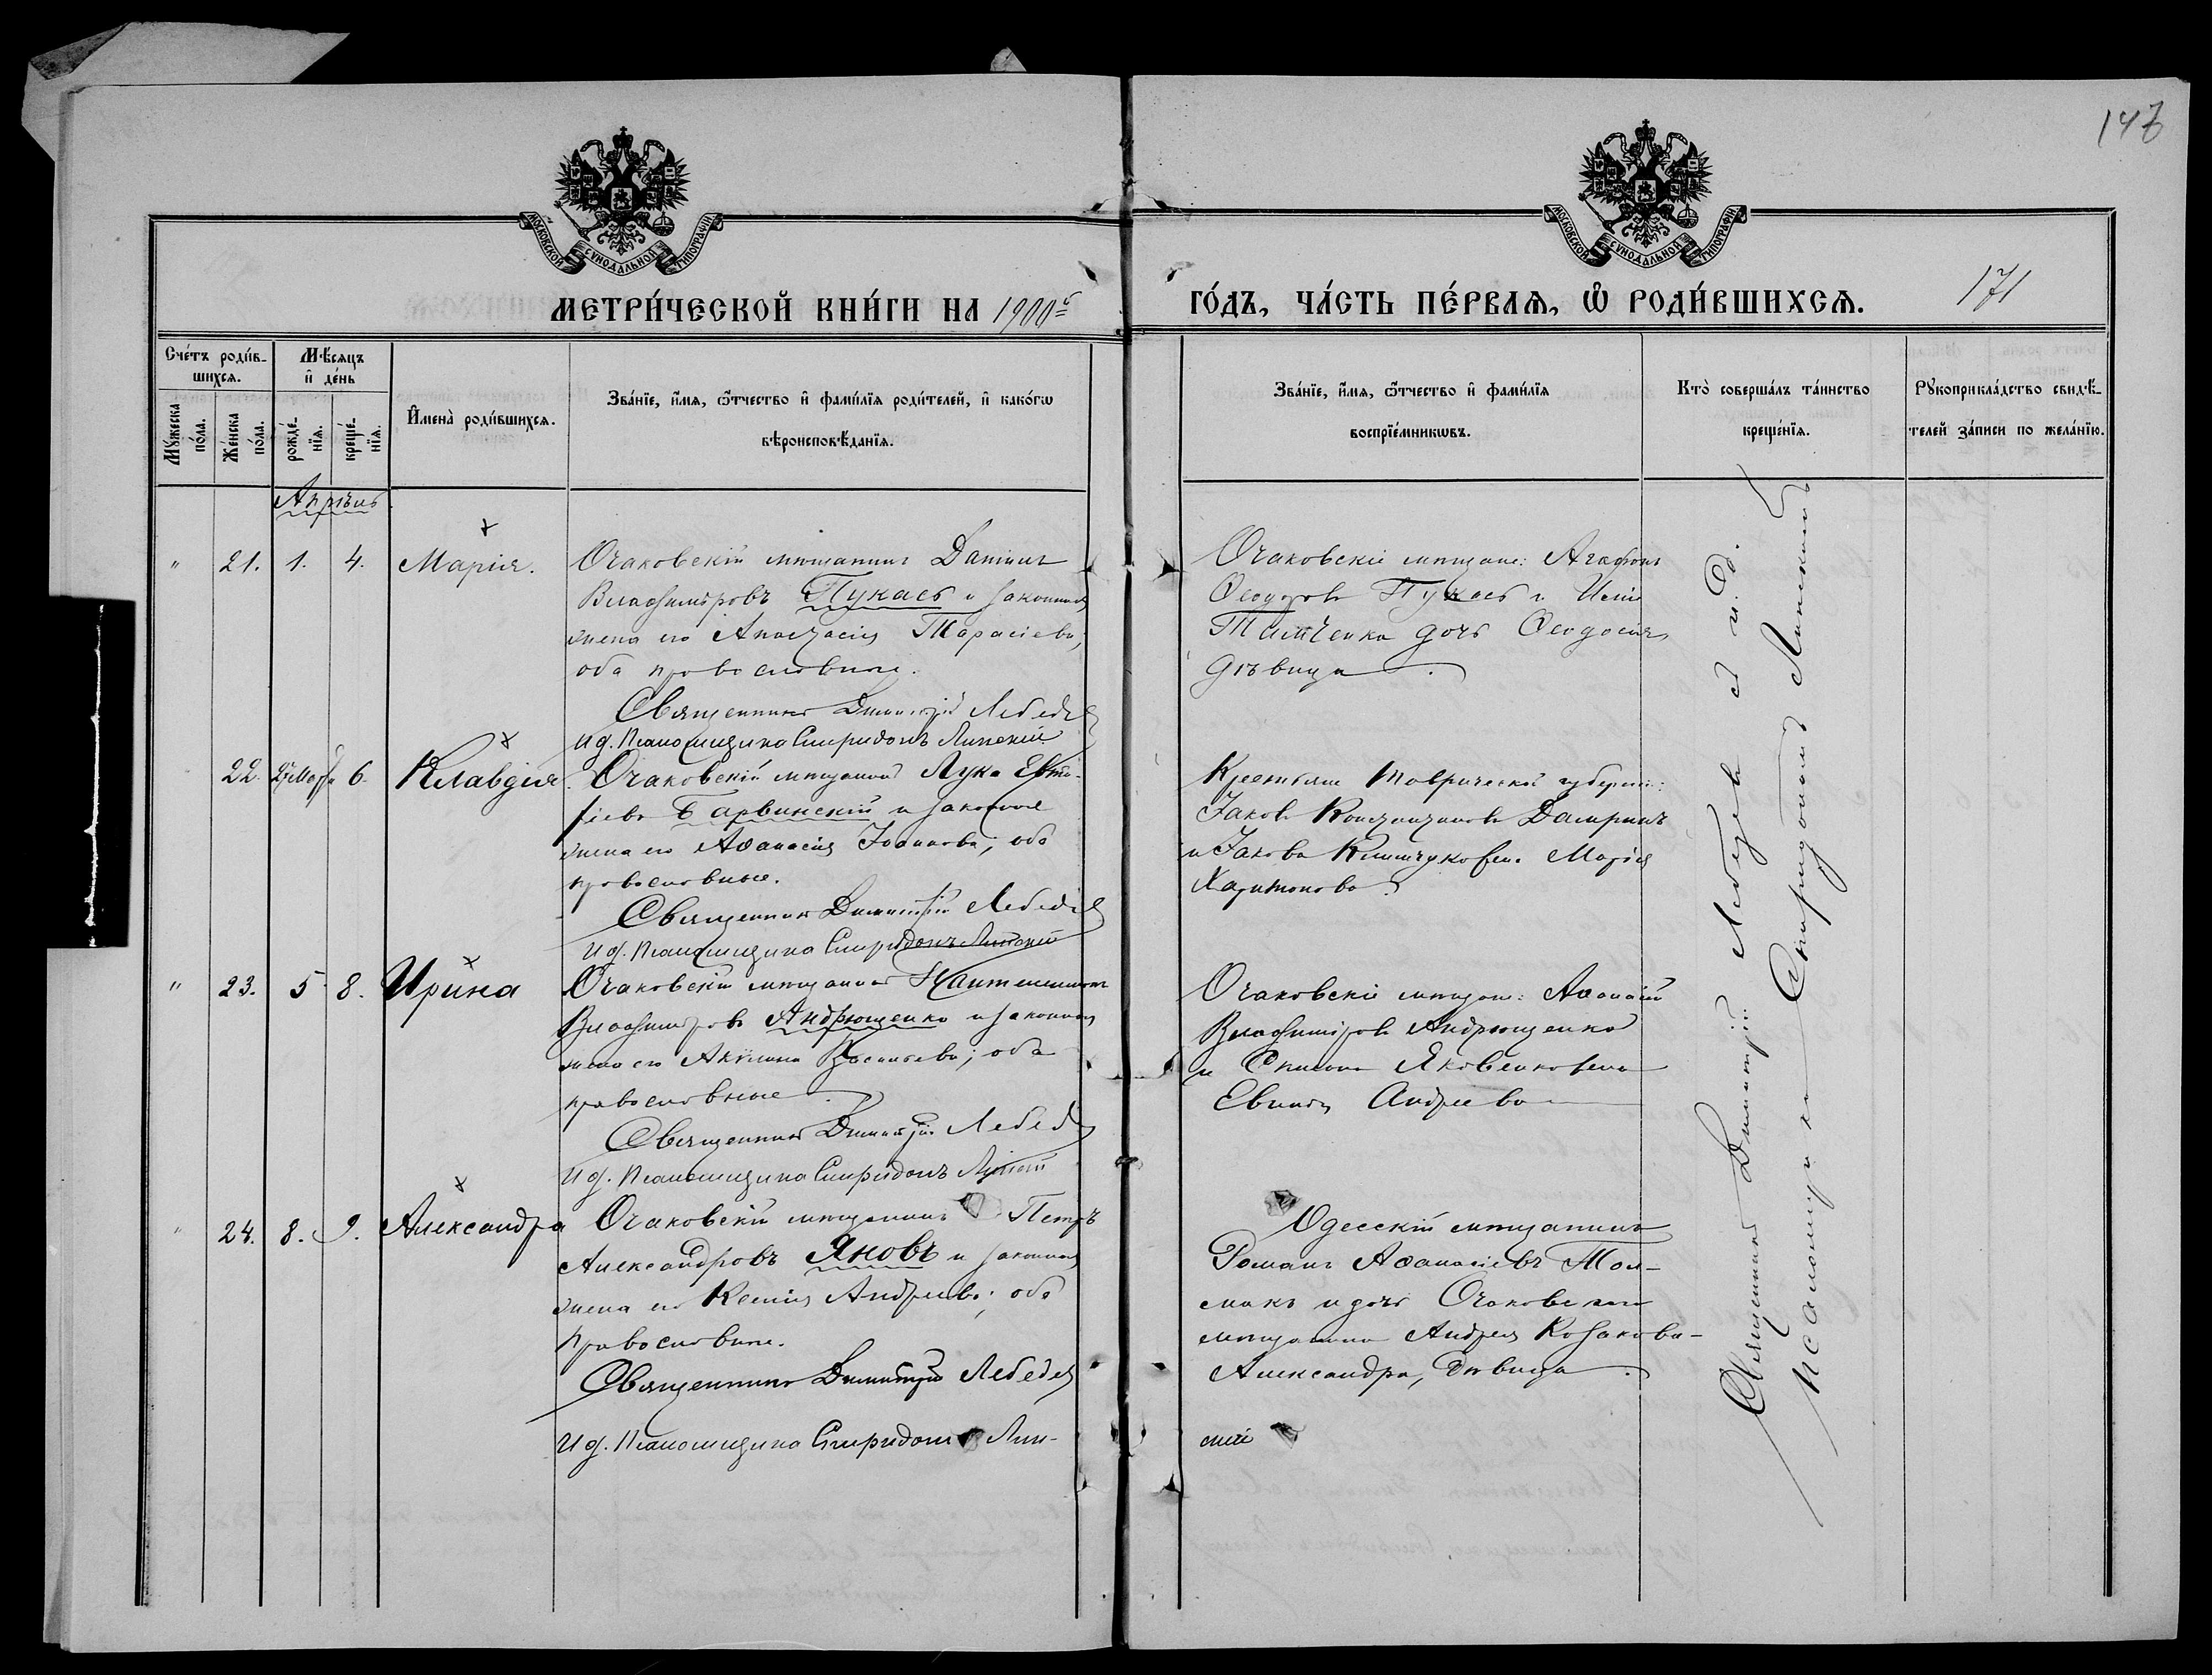 147
МОСКОВСКОЙ СѴНОДАЛЬНОЙ ТИПОГРАФІИ
МОСКОВСКОЙ СѴНОДАЛЬНОЙ ТИПОГРАФІИ
МЕТРИ́ЧЕСКОЙ КНИ́ГИ НА 1900й
ГО́ДЪ, ЧА́СТЬ ПЕ́РВАЯ, Ѡ РОДИ́ВШИХСЯ.
171
Сче́тъ роди́в-
шихся.
Мѣсяцъ
и де́нь
Мꙋжеска
по́ла.
Же́нска
по́ла.
рожде́-
нїя.
креще́-
нїя.
И҆мена̀ роди́вшихся.
Зва́нїе, и҆́мя, ѻ҆́тчество и҆ фами́лїя роди́телей, и҆ како́гѡ
вѣроисповѣ́данїя.
Зва́нїе, и҆́мя, ѻ҆́тчество и҆ фами́лїя
воспрїе́мникѡвъ.
Кто̀ соверша́лъ та́инство
креще́нїя.
Рꙋкоприкла́дство свидѣ́-
телей за́писи по жела́нїю.
Апрѣль
" 21. 1. 4. Марія.
Очаковскій мѣщанинъ Даніилъ
Владиміровъ Пукасъ и законная
жена его Анастасія Тарасіева;
оба православные.
Священникъ Димитрій Лебедев
И д. Псаломщика Спиридонъ Липскій
Очаковскіе мѣщане: Агафонъ
Феодоровъ Пукасъ и
Тимченка дочь Феодосія
дѣвица.
22. 27 Марта 6. Клавдія.
Очаковскій мѣщанинъ Лука Евти-
фіевъ Барвинскій и законная
жена его Афанасія Іоаннова; оба
православные.
Священникъ Димитрій Лебедев
И д. Псаломщика Спиридонъ Липскій
Крестьяне Таврической губерніи:
Іаковъ Константиновъ
и Іакова жена Марія
Харитонова.
" 23. 5 8. Ирина
Очаковскій мѣщанинъ
Владиміровъ Андрющенко и законная
жена его Акилина Васильева; оба
православные.
Священникъ Димитрій Лебедев
И д. Псаломщика Спиридонъ Липскій
Очаковскіе мѣщане: Афанасій
Владиміровъ Андрющенко
и Яковенкова жена
Андреева
" 24. 8. 9. Александра
Очаковскій мѣщанинъ Петръ
Александровъ Яновъ и законная
жена его Ксенія Андреева; оба
православные.
Священникъ Димитрій Лебедев
И д. Псаломщика Спиридонъ Лип-
скій
Одесскій мѣщанинъ
Романъ Афанасіевъ Тол-
макъ и дочь Очаковскаго
мѣщанина Андрея Козакова
Александра, дѣвица.
Священникъ Димитрій Лебедев съ и. д.
псаломщика Спиридономъ Липскимъ